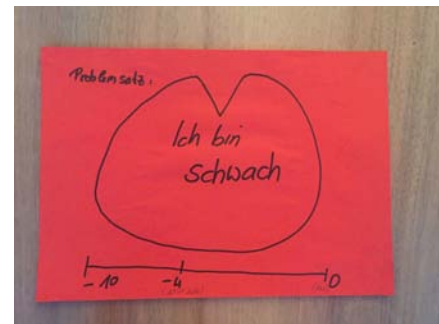 Problemsatz:
Ich bin
schwach
-10 -4 0